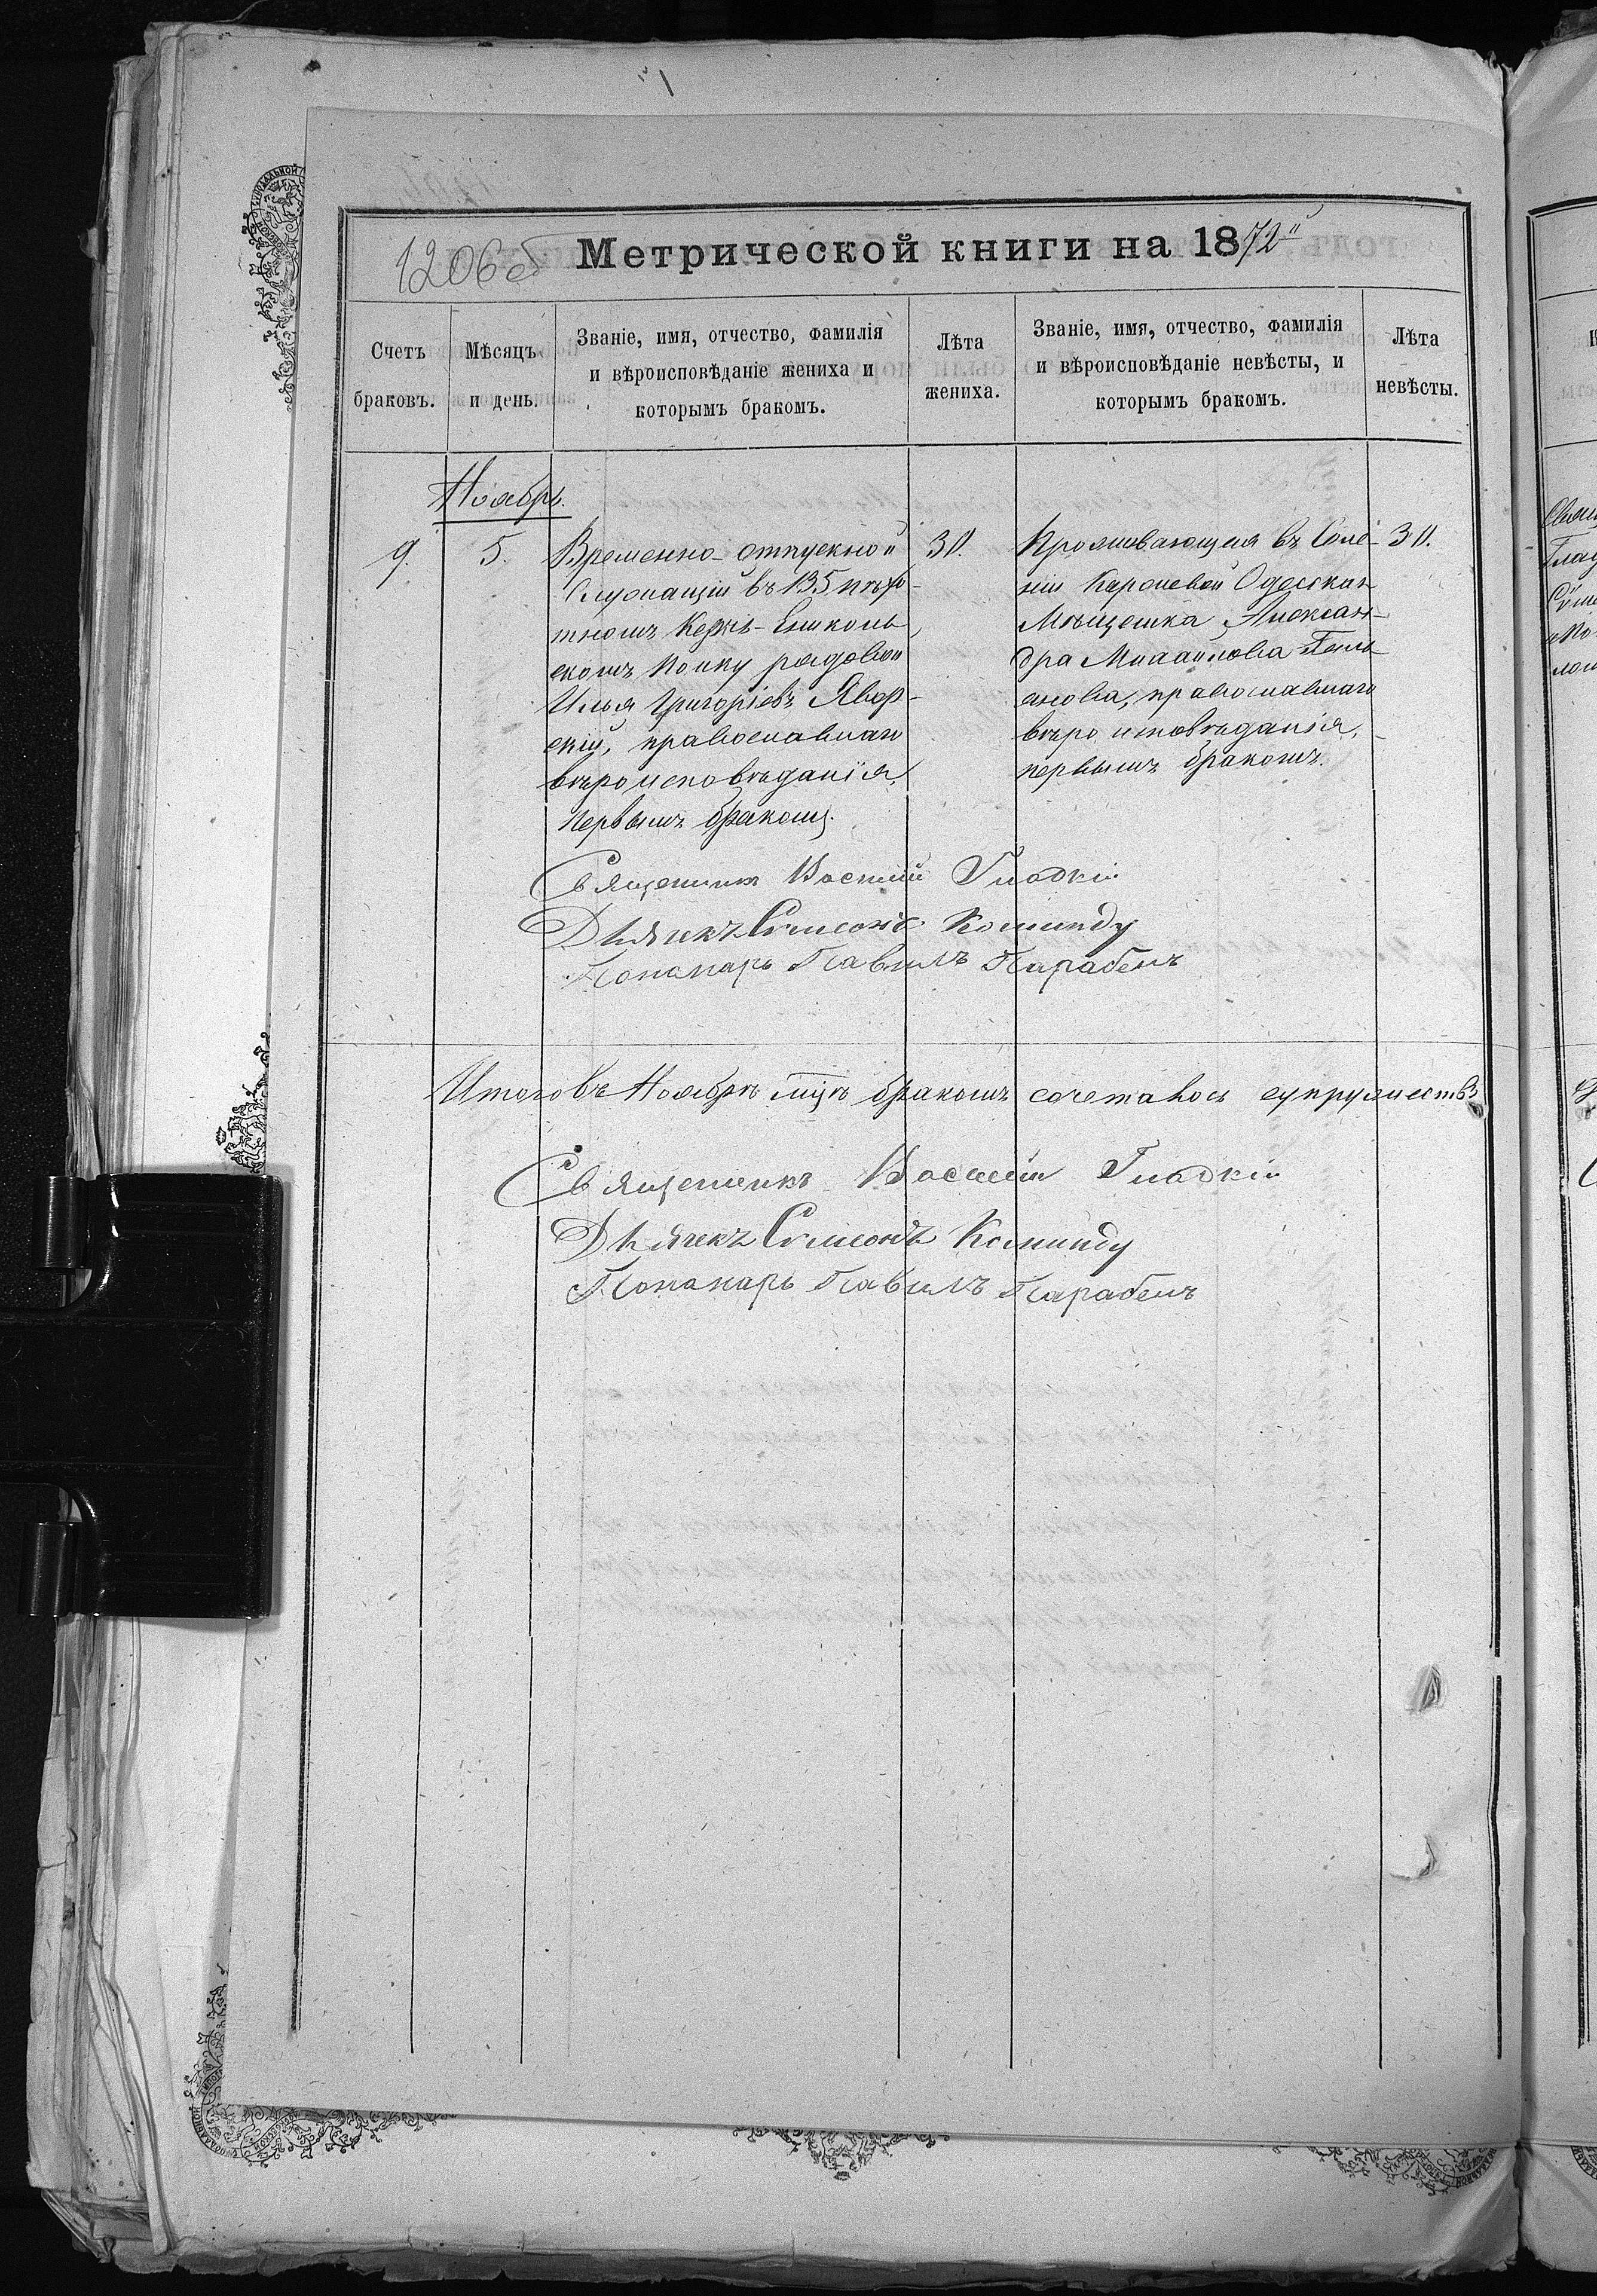 1206об Метрической книги на 1872й
Счетъ браковъ.
Мѣсяцъ и день.
Званіе, имя, отчество, фамилія
и вѣроисповѣданіе жениха и
которымъ бракомъ.
Лѣта жениха.
Званіе, имя, отчество, фамилія
и вѣроисповѣданіе невѣсты, и
которымъ бракомъ.
Лѣта невѣсты.
Ноябрь.
9.
5.
Временно-отпускной
Служащій въ 135 пѣхо-
тномъ Керчь-Еникольс-
скомъ полку рядовой
Илья Григоріевъ Явор-
скій, православнаго
вѣроисповѣданія,
первымъ бракомъ.
30.
Проживающая въ Селе-
ніи Одесская
Мѣщанка, Алексан-
дра Михайлова
православнаго
вѣроисповѣданія,
первымъ бракомъ.
30.
Священникъ Василій Гладкій
Дьячекъ Симеонъ
Пономарь Павелъ
Итого въ Ноябрѣ мцѣ бракомъ сочеталось супружество
Священникъ Василій Гладкій
Дьячекъ Симеонъ
Пономарь Павелъ